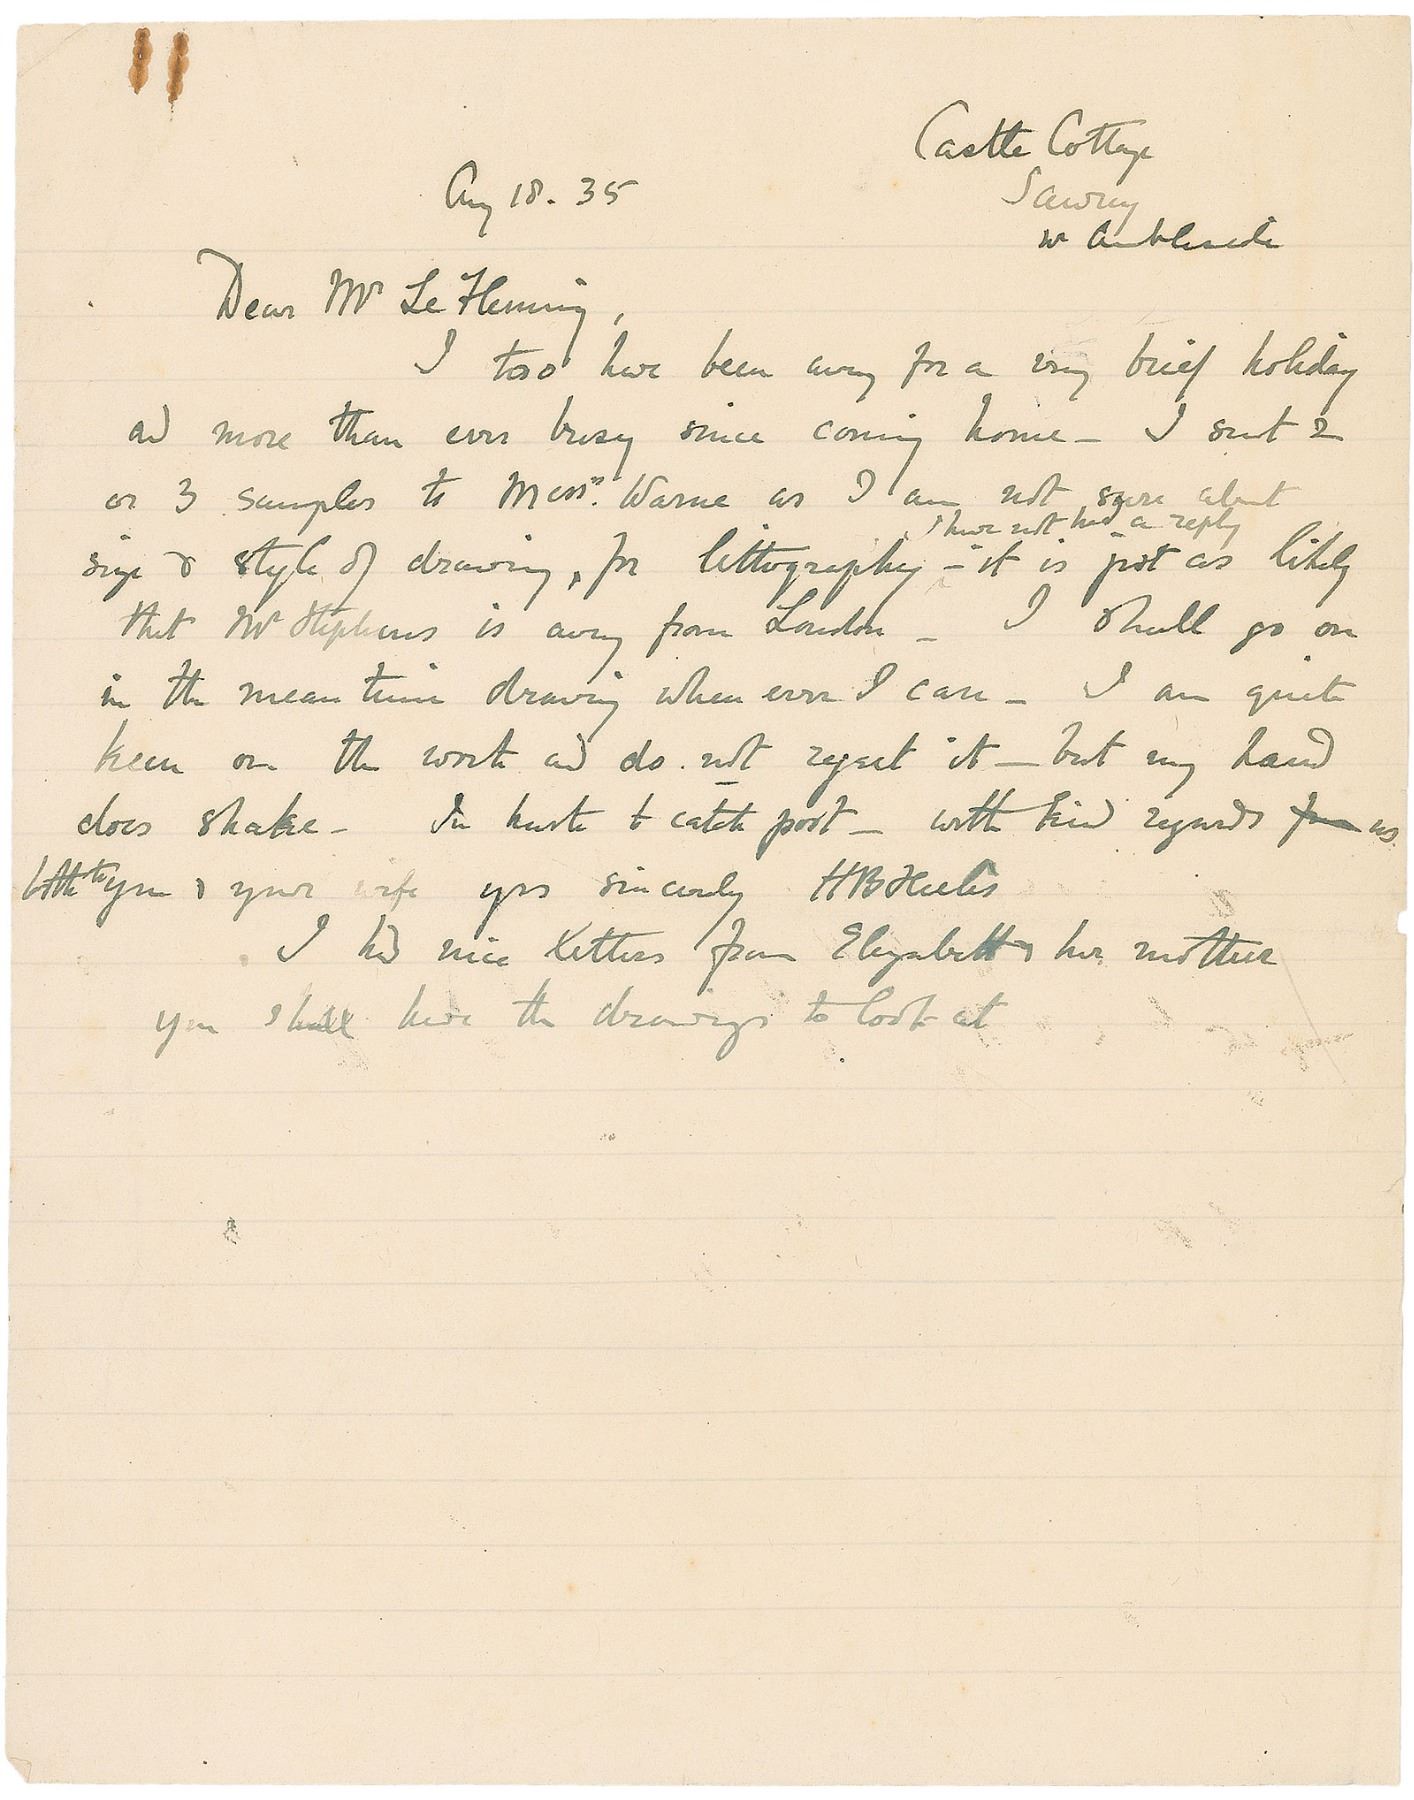 Castle Cottage
Aug 18. 35
Sawrey
nr Ambleside
Dear Mr Le Fleming,
I too have been away for a very brief holiday
and more than ever busy since coming home – I sent 2
or 3 samples to Messrs. Warne as I am not sure about
I have not had a reply
size & style of drawing, for lithography – it is just as likely
that Mr Stephens is away from London – I shall go on
in the mean time drawing when ever I can – I am quite
keen on the work and do not regret it – but my hand
does shake – In haste to catch post – with kind regards from us
both to you & your wife yrs sincerely HB Heelis
I had nice letters from Elizabeth & her mother
you shall have the drawings to look at